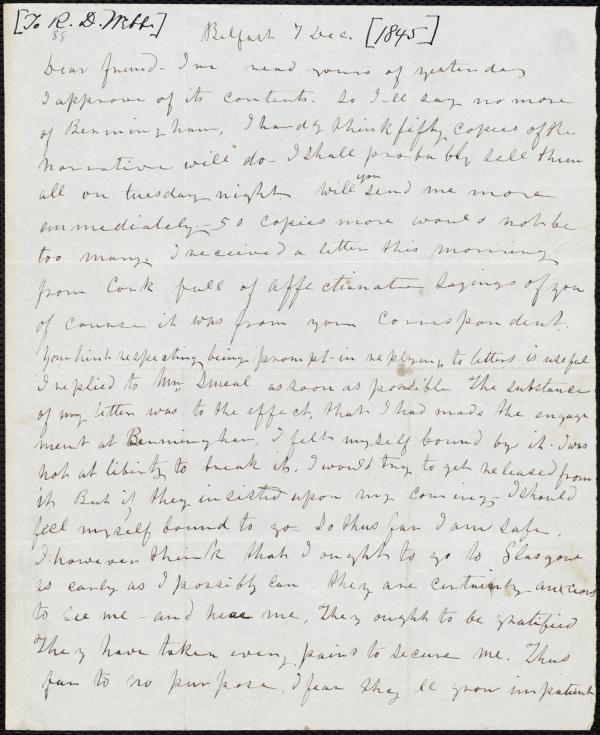 [To R. D. Webb.]
88
Belfast 7 Dec. [1845]
Dear friend - I've read yours of yesterday
I approve of its contents. So I-ll say no more
of Benmingham, I hardly think fifty copies of the
narrative will do - I shall probably sell them
all on tuesday night will you send me more
emmediately - 50 copies more would not be
too many. I received a letter this morning
from Cork full of affectionate sayings of you
of course it was from your correspondent.
Your hint respecting being prompt - in replying to letters is useful
I replied to Mr. Smeal as soon as possible. The substance
of my letter was to the effect, that I had made the engage
ment at Benmingham, I felt myself bound by it. I was
not at liberty to break it, I would try to get released from
it, But if they insisted upon my coming - I should
feel myself bound to go - So thus far I am safe.
I however think that I ought to go to Glasgow
as early as I possibly can - they are certainly anxious
to see me - and hear me, They ought to be gratified
They have taken every pains to secure me. Thus
far to no purpose, I fear they'll grow impatient